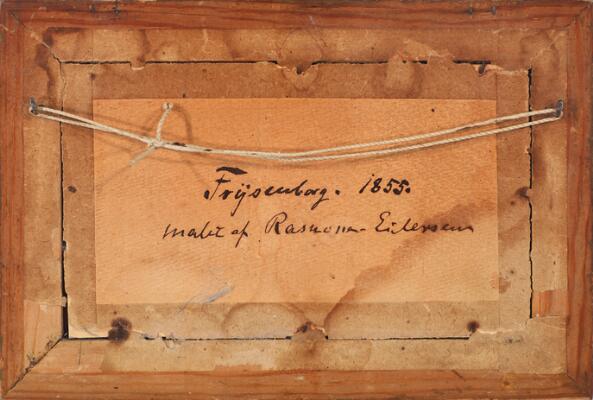 Frijsenborg. 1855.
malet af Rasmus-Eilersen